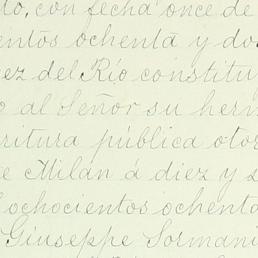 to, con fecha once de
entos ochenta y dos
ez del Río constitu
o al Señor su herm
ritura pública otor
e Milan á diez y s
ochocientos ochenta
Giuseppe Sormani